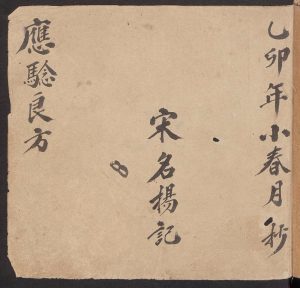 乙卯年小春月抄
宋名楊記
應騐良方